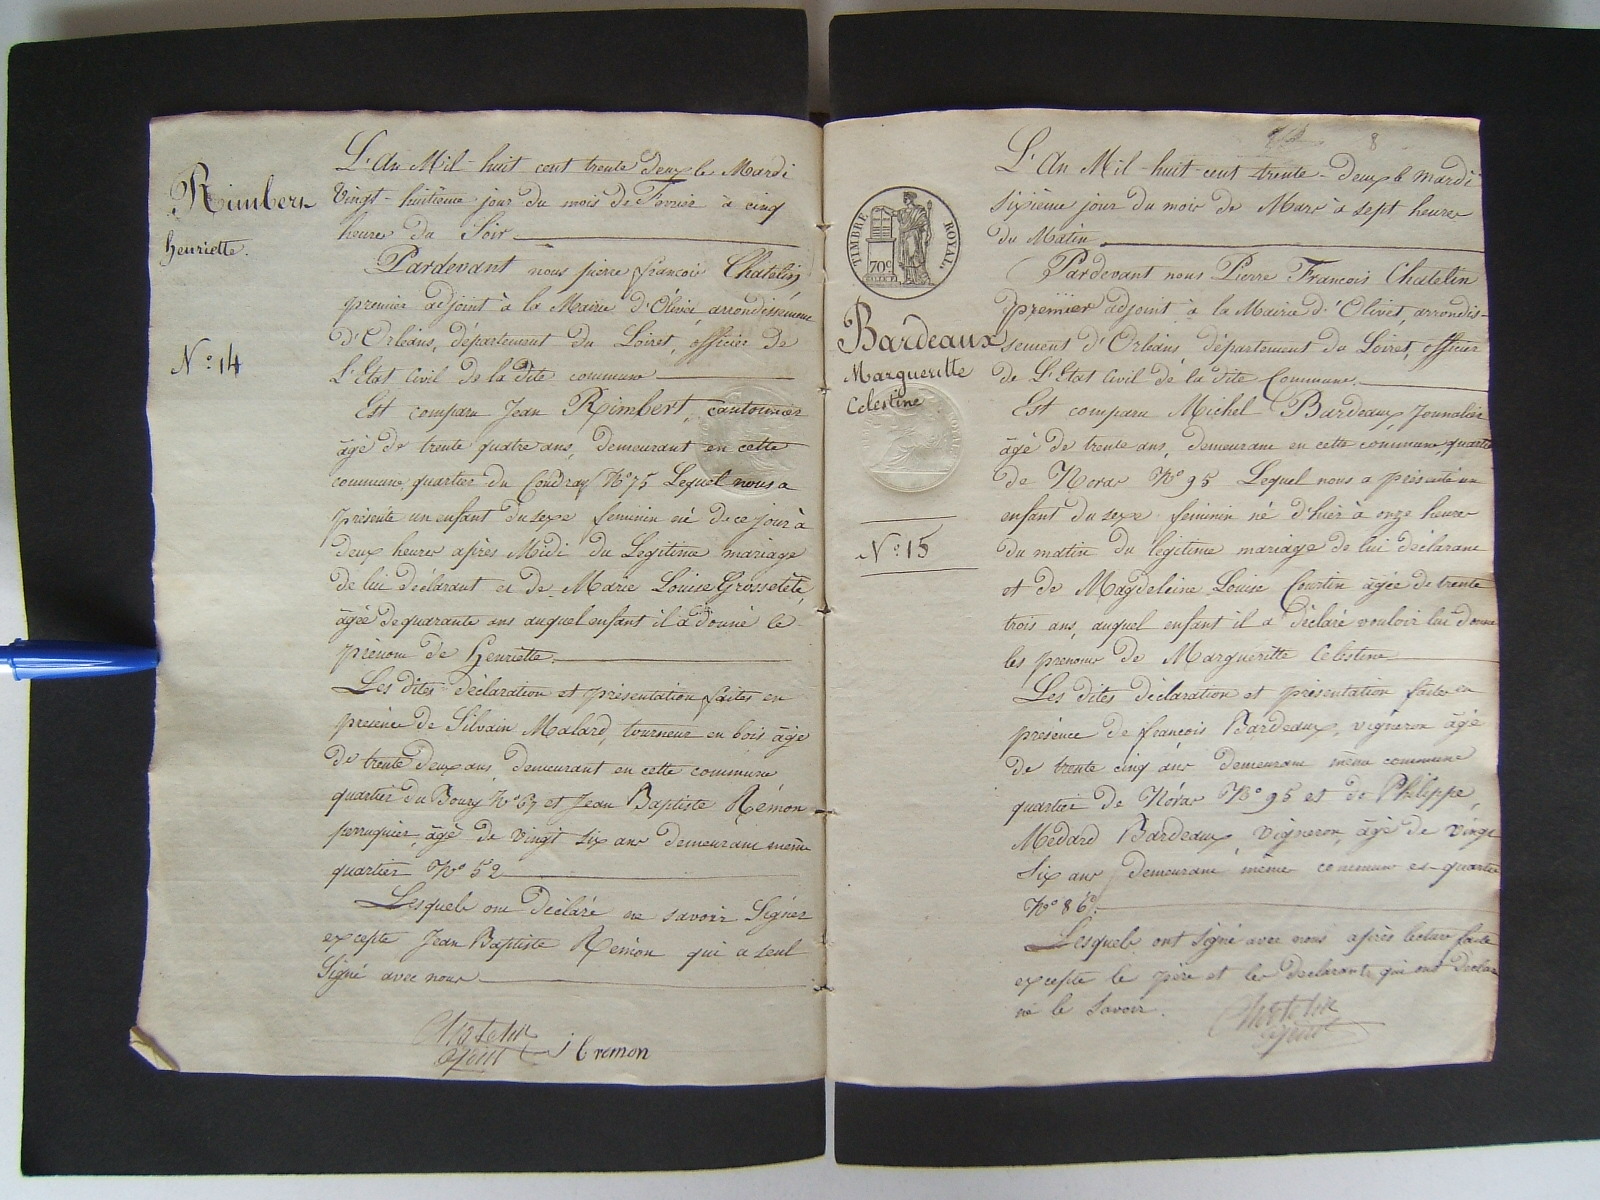 Rimbert
henriette.
N.o 14
L'An Mil-huit cent trente deux le Mardi
Vingt-huitieme jour du mois de Fevrier à cinq
heures du Soir
Pardevant nous pierre françois Chatelin,
premier adjoint à la Mairie d'Olivet arrondissement
d'Orléans, département du Loiret, officier de
L'Etat Civil de la dite commune
Est comparu Jean Rimbert, cantonnier
âgé de trente quatre ans, demeurant en cette
commune, quartier du Coudray No 75 Lequel nous a
présenté un enfant du sexe feminin né de ce jour à
deux heures après Midi du Legitime mariage
de lui déclarant et de Marie Louise Grossetête,
âgée de quarante ans auquel enfant il a donné le
prénom de Henriette.
Les dites déclaration et présentation faites en
presence de Silvain Malard, tourneur en bois âgé
de trente deux ans, demeurant en cette commune
quartier du Bourg No 67 et Jean Baptiste Rémon
perruquier, âgé de vingt six ans demeurant même
quartier No 52
Lesquels ont déclaré ne savoir Signer
excepté Jean Baptiste Rémon qui a seul
Signé avec nous
Chatelin
adjoint
j b remon
8
TIMBRE ROYAL
70c
Bardeaux
Margueritte
Celestine
N.o 15
L'An Mil-huit-cent-trente-deux le mardi
sixième jour du mois de Mars à sept heures
du Matin
Pardevant nous Pierre François Chatelin
premier adjoint à la Mairie d'Olivet, arrondis-
sement d'Orléans, département du Loiret, officier
de L'Etat Civil de la dite Commune.
Est comparu Michel Bardeaux, Journalier
âgé de trente ans, demeurant en cette commune, quartier
de Noras No 95 Lequel nous a présenté un
enfant du sexe feminin né d'hier à onze heures
du matin du légitime mariage de lui déclarant
et de Magdeleine Louise Courtin âgée de trente
trois ans, auquel enfant il a déclaré vouloir lui donner
les prenoms de Margueritte Celestine
Les dites déclaration et présentation faites en
présence de françois Bardeaux, vigneron âgé
de trente cinq ans demeurant même commune
quartier de Noras No 95 et de Philippe,
Médard Bardeaux, vigneron, âgé de vingt
six ans demeurant même commune et quartier
No 86.
Lesquels ont signé avec nous après lecture faite
excepté le père et les declarants qui ont déclaré
ne le savoir.
Chatelin
adjoint